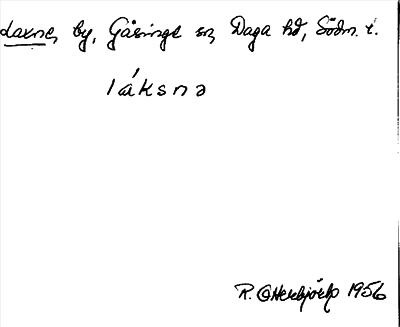 Laxne, by, Gåsinge sn, Daga hd, Södm. t.
láksnə
R. Otterbjörk 1956